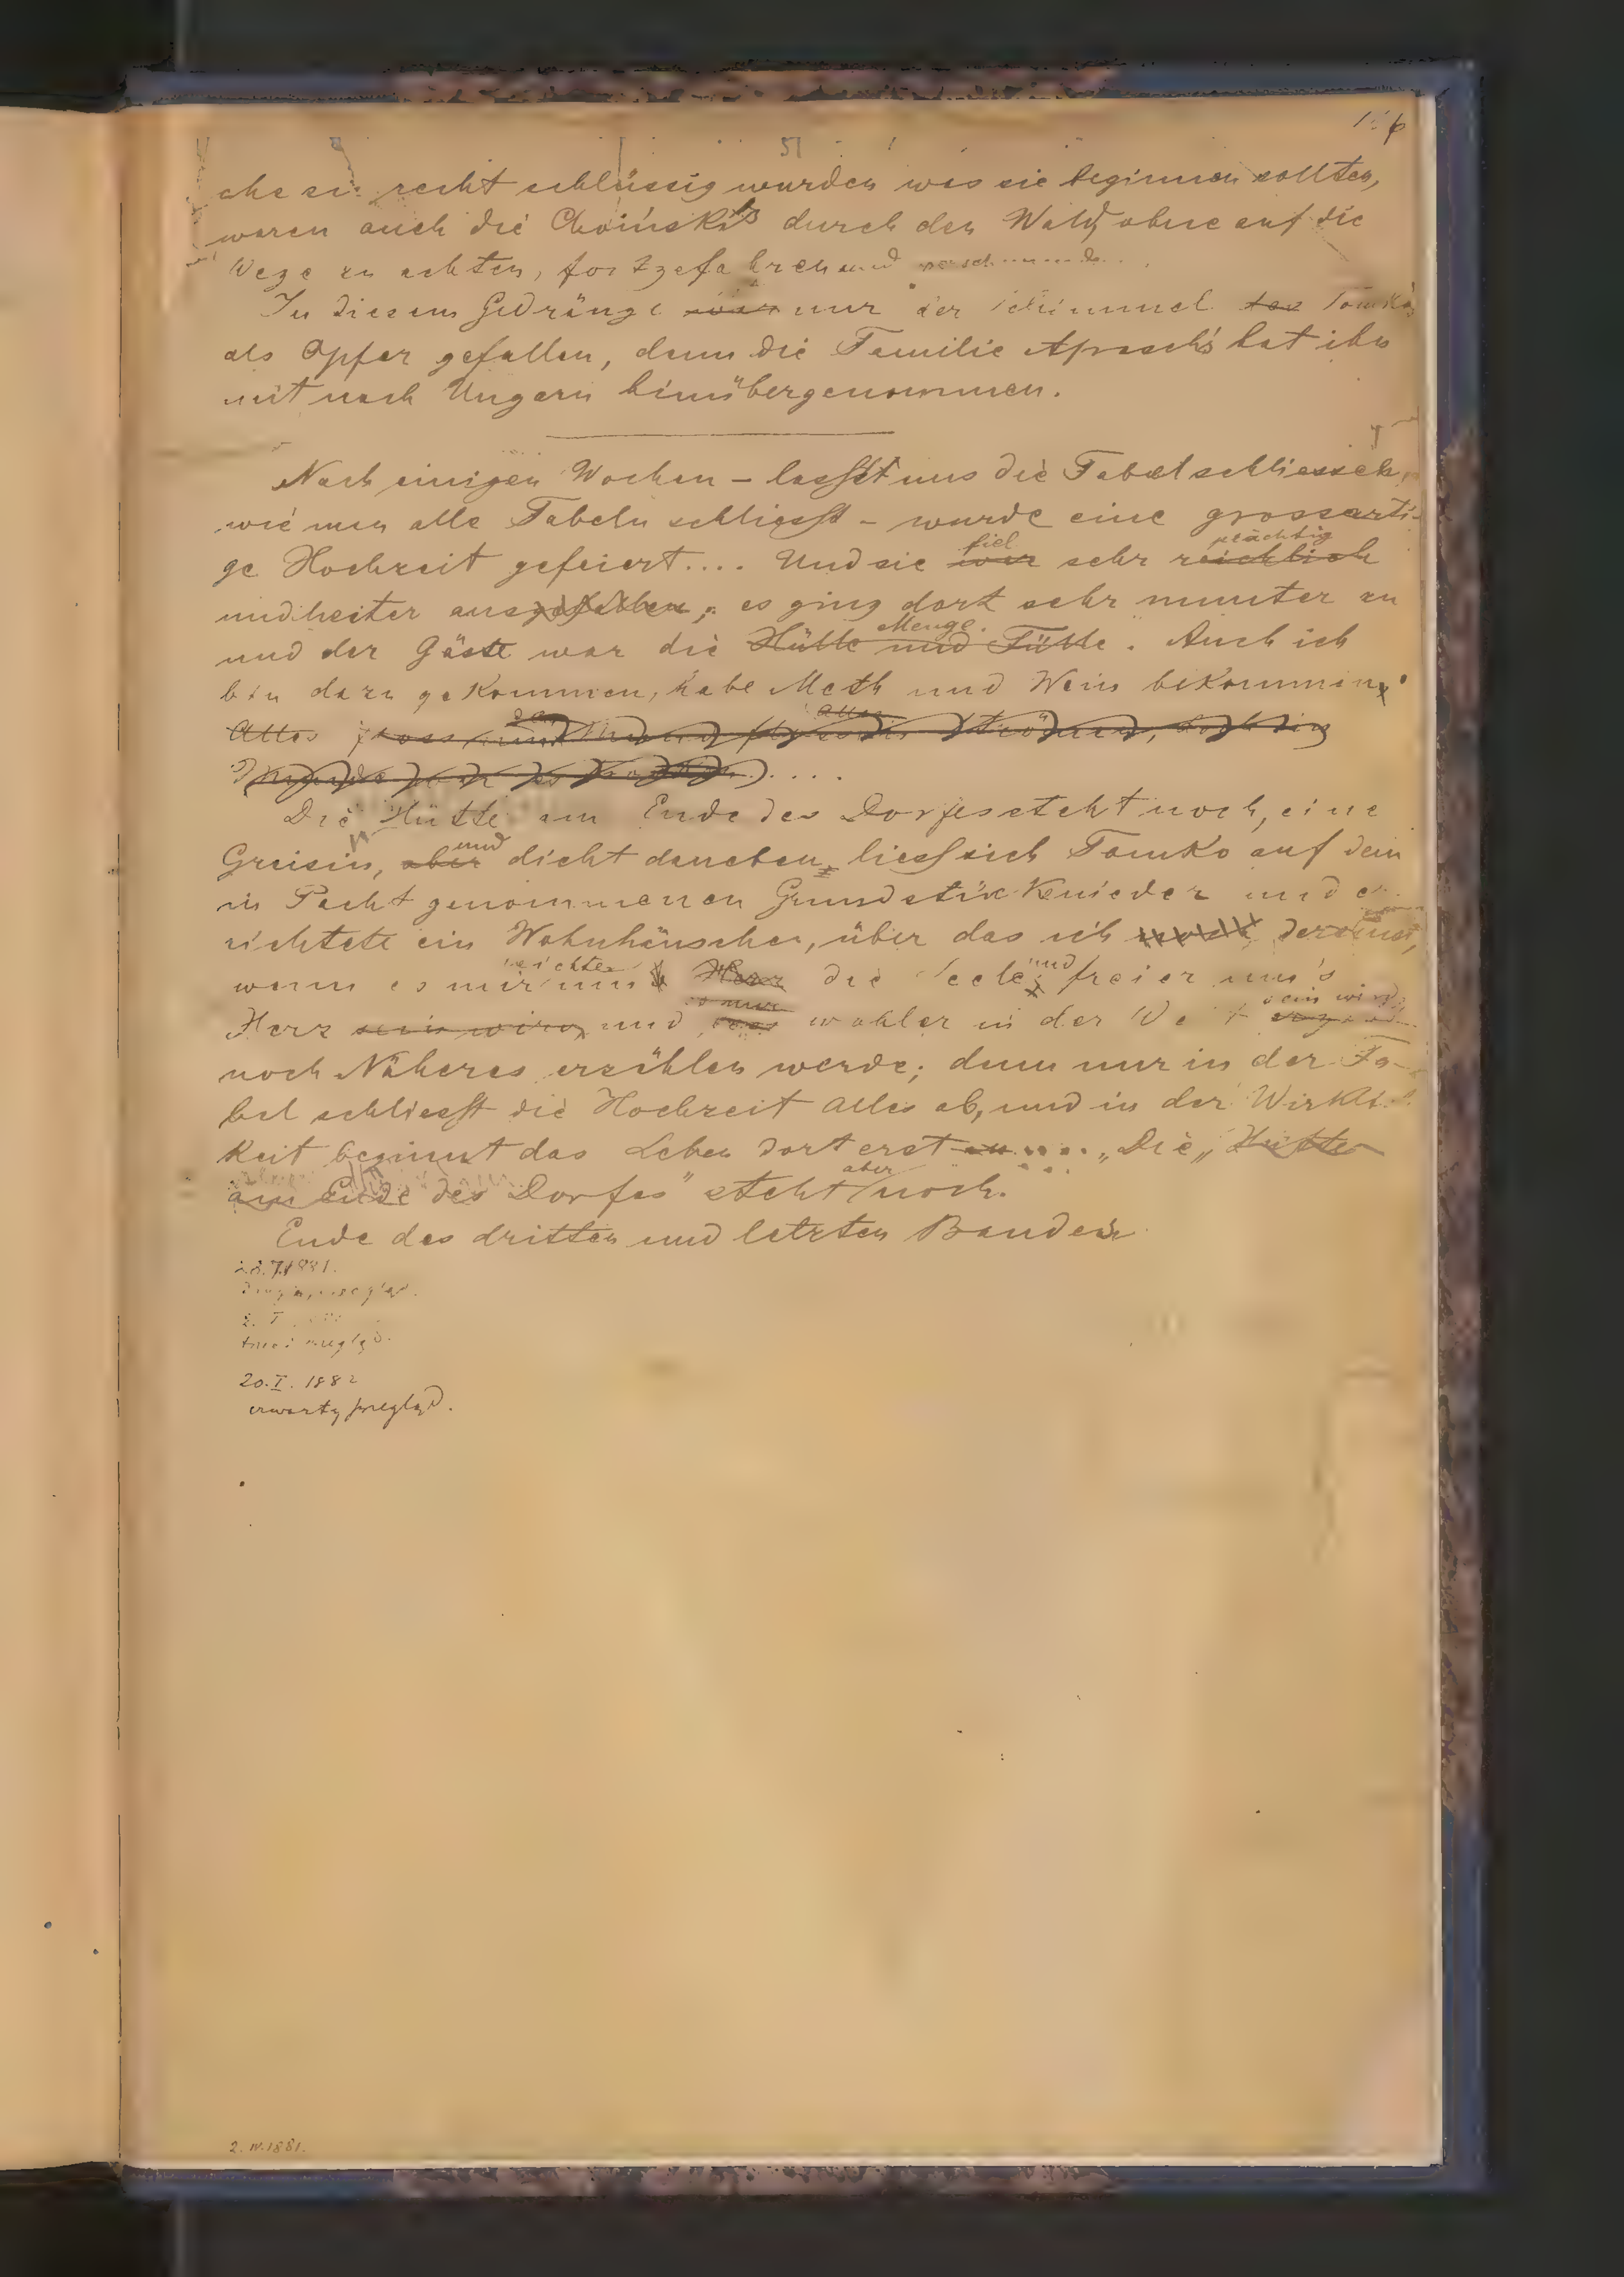 51
ehe sie recht schlüssig wurden was sie beginnen sollten,
waren auch die Choiński's durch den Wald, ohne auf die
Wege zu achten, fortgefahren und
In diesem Gedränge war nur der Schimmel des Tomko's
als Opfer gefallen, denn die Familie Aprasch's hat ihn
mit nach Ungarn hinübergenommen.
Nach einigen Wochen – lasst uns die Fabel schliessen,
wie man alle Fabeln schliesst – wurde eine grossarti-
fiel prächtig
ge Hochzeit gefeiert.... Und sie war sehr reichlich
und heiter ausgefallen; es ging dort sehr munter zu
Menge.
und der Gäste war die Hülle und Fülle. Auch ich
bin dazu gekommen, habe Meth und Wein bekommen.
Alles
....
Die Hütte am Ende des Dorfes steht noch, eine
und
Greisin, aber dicht daneben, liess sich Tomko auf dem
in Pacht genommenen Grundstück nieder und er-
richtete ein Wohnhäuschen, über das ich noch dereinst,
leichter und
wenn es mir um's Herz die Seele freier um's
sein wird,
Herz sein wird, und wohler in der Welt
noch Näheres erzählen werde; denn nur in der Fa-
bel schliesst die Hochzeit Alles ab, und in der Wirklich-
keit beginnt das Leben dort erst an .... „Die „Hütte
aber
am Ende des Dorfes" steht noch.
Ende des dritten und letzten Bandes.
1881.
20.I. 1882
czwarty przegląd.
2. IV. 1881.